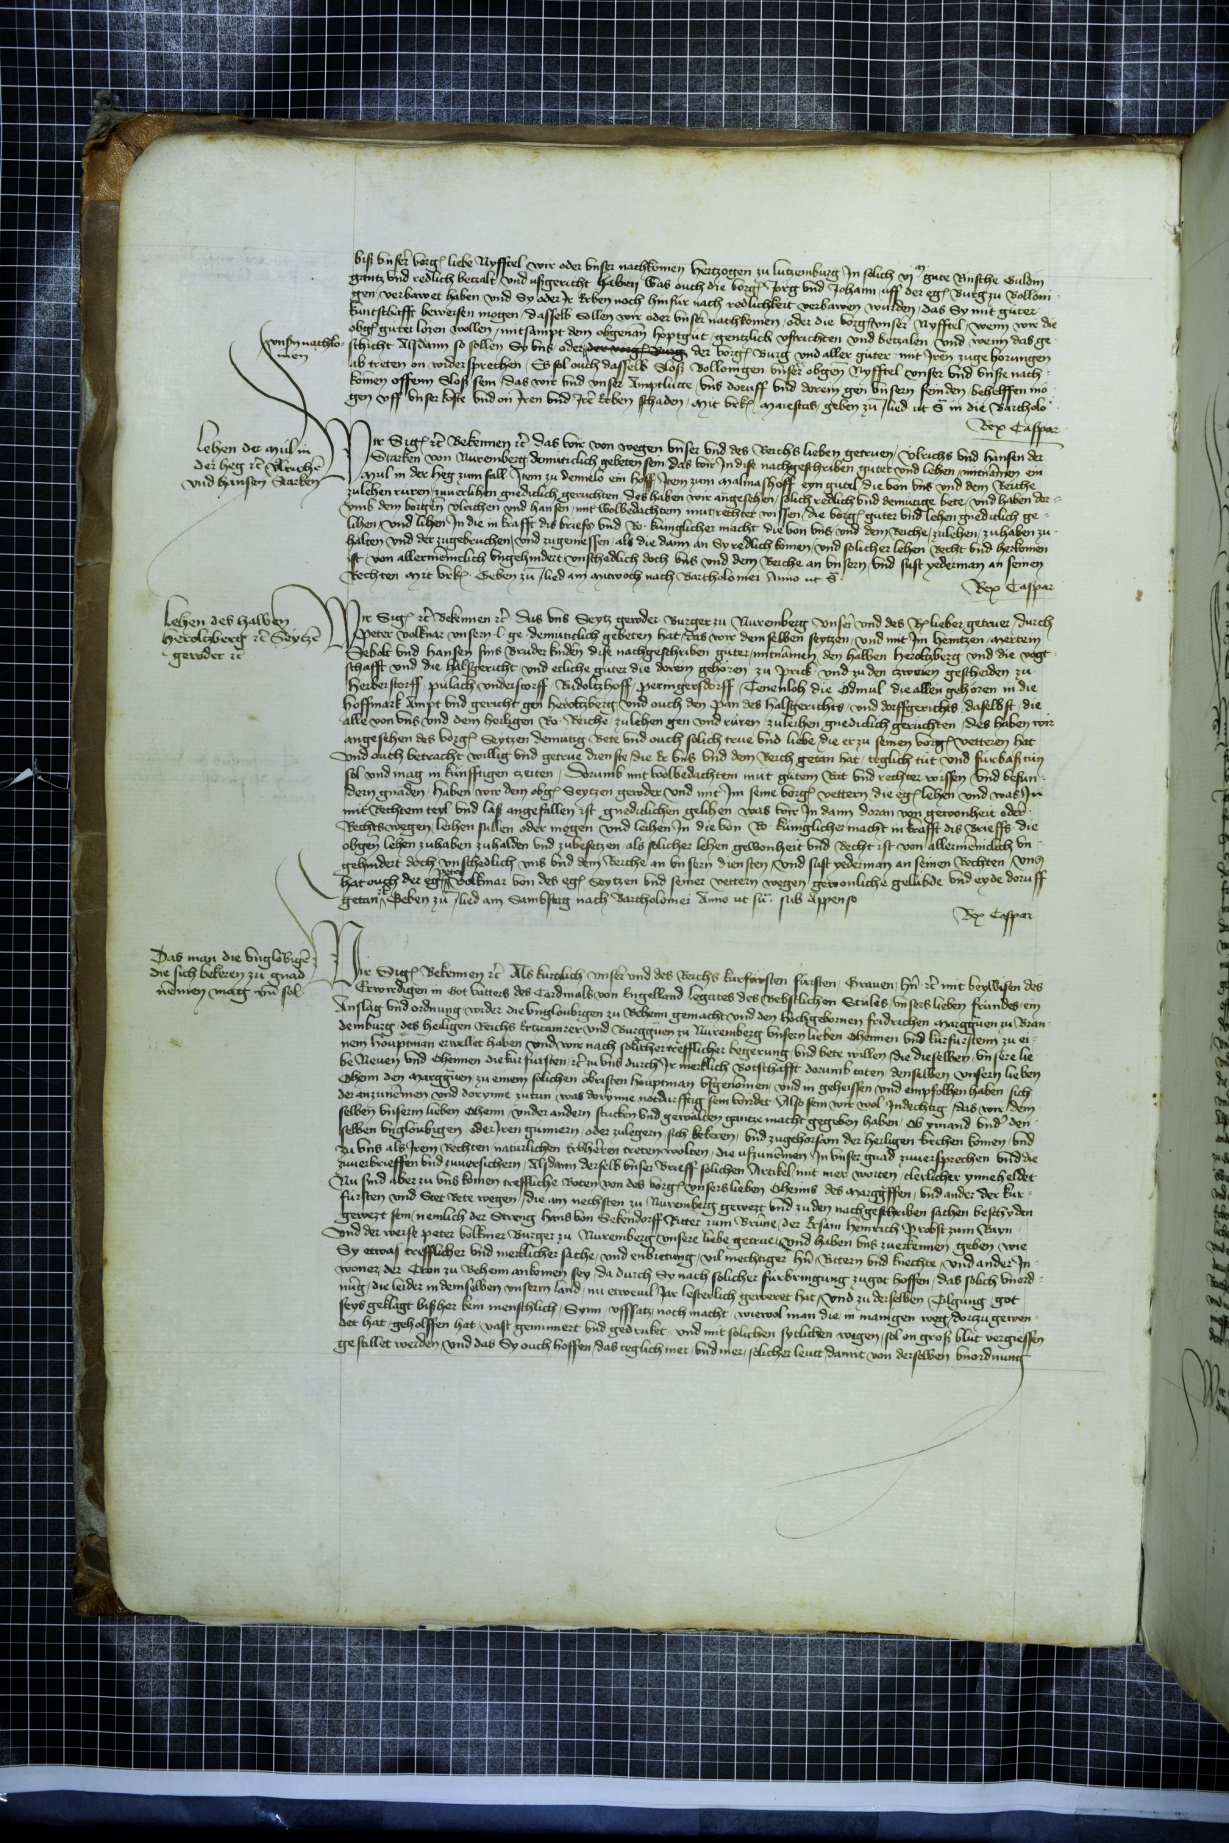 biß vnser vorg liebe Nyfftel wir oder vnser nachkomen Hertzogen zu lutzemburg In solich vj m gute Rinsche Guldin
gantz vnd redlich betzalt vnd ußgericht haben Was ouch die vorg Jorg vnd Johann uff der eg Burg zu Bolloni-
gen verbawet haben vnd Sy oder Ir Erben noch hinfur nach redlichkeit verbawen wurden das Sy mit guter
kuntschafft beweisen mogen dasselb sollen wir oder vnser nachkomen oder die vorg vnser Nyfftel wenn wir die
obg guter lozen wollen mitsampt dem obgenan hoptgut gentzlich ußrichten vnd betzalen vnd wenn das ge-
schicht Alßdann so sollen Sy vns oder der vorg Burg der vorg Burg vnd aller guter mit Iren zugehorungen
vnsern nachko-
men
ab treten on widersprechen Es sol ouch dasselb Sloß Bollonigen vnser obgen Nyfftel vnser vnd vnser nach-
komen offenn Sloß sein das wir vnd vnser Amptlute vns doruff vnd dorein gen vnsern feinden behelffen mo-
gen uff vnser koste vnd on Iren vnd Irer Erben schaden mit vrk maiestas geben zu lied ut s in die Bartholo
Rex Caspar
Lehen der mul in
der heg rc Vlrichen
vnd hansen Starken
Wir Sig rc Bekennen rc das wir von wegen vnser vnd des Reichs lieben getruen Vlrichs vnd hansen der
Starken von Nuremberg demuticlich gebeten sein das wir In dise nachgeschriben guter vnd lehen mitnamen ein
mul in der heg zum fall Item zu dennelo ein hoff Item zum malmashoff eyn gutel die von vns vnd dem Reiche
zulehen ruren zuuerlihen gnediclich geruchten des haben wir angesehen solich redlich vnd demutige bete vnd haben dor-
vmb dem vorgen Vlrichen vnd hansen mit wolbedachtem mut rechter wissen die vorg guter vnd lehen gnediclich ge-
lihen vnd lihen In die in krafft dis briefs vnd Ro kuniglicher macht die von vns vnd dem Reiche zulehen zuhaben zu-
halten vnd der zugebruchen vnd zugeniessen als die dann an Sy redlich komen vnd solicher lehen Recht vnd herkomen
ist von allermeniclich vngehindert vnschedlich doch vns vnd dem Reiche an vnsern vnd sust yederman an seinen
Rechten mit vrk Geben zu lied am mitwoch nach Bartholomei Anno ut s
Rex Caspar
Lehen des halben
Heroltzberg rc Seytzen
gewder rc
Wir Sig rc Bekennen rc das vns Seytz gewder Burger zu Nuremberg vnser vnd des R lieber getruer durch
Peter volkmar vnsern l ge demuticlich gebeten hat das wir dem selben Seytzen vnd mit Im Heintzen mertein
Sebolt vnd hansen sins Bruder kinden dise nachgeschriben guter mitnamen den halben Heroltzberg vnd die vogt-
schafft vnd die halsgericht vnd etliche guter die dorein gehoren zu Prick vnd zu den tzweien gescheiden zu
Herberstorff pulach vnderstorff Rudoltzhoff peringersdorff Tenenloh die Edmul die allen gehoren in die
hoffmark Ampt vnd gericht gen heroltzberg vnd ouch den pan des halsgerichts vnd dorffgerichts daselbst die
alle von vns vnd dem heiligen Ro Reiche zu lehen gen vnd ruren zuleihen gnediclich geruchten des haben wir
angesehen des vorg Seytzen demutig Bete vnd ouch solich true vnd liebe die er zu seinen vorg vettern hat
vnd ouch betracht willig vnd getrue dienste die Er vns vnd dem Reich getan hat teglich tut vnd furbaß tun
sol vnd mag in kunfftigen tzeiten Dorumb mit wolbedachtem mut gutem Rat vnd rechter wissen vnd besun-
dern gnaden haben wir dem obg Seytzen gewder vnd mit Im seine vorg vettern die eg lehen vnd was In
mit Rechtem teyl vnd laß angefallen ist gnediclichen gelihen was wir In dann doran von gewonheit oder
Rechts wegen leihen sullen oder mogen vnd leihen In die von Ro kuniglicher macht in krafft dis Brieffs die
obgen lehen zuhaben zuhalden vnd zubesetzen als solicher lehen gewonheit vnd Recht ist von allermeniclich vn-
gehindert doch vnschedlich vns vnd dem Reiche an vnsern diensten vnd sust yederman an seinen Rechten vnd
hat ouch der eg Peter volkmar von des eg Seytzen vnd seiner vettern wegen gewonliche gelubde vnd eyde doruff
getan rc Geben zu lied am Sambstag nach Bartholomei Anno ut su sub Appenso
Rex Caspar
Das man die vngloubigen
die sich bekeren zu gnad
nemen mag vnd sol
Wir Sig Bekennen rc Als kurtzlich vnser vnd des Reichs kurfursten fursten Grauen hn rc mit beywesen des
Erwirdigen in Got vatters des Cardinals von Engelland legates des Bebstlichen Stules vnsers lieben frundes ein
Anslag vnd ordnung wider die vngloubigen zu Behem gemacht vnd den hochgebornen fridrichen marggrauen zu Bran-
demburg des heiligen Reichs Ertzcamrer vnd Burggrauen zu Nuremberg vnsern lieben Oheimen vnd kurfursten zu ei-
nem houptman erwellet haben vnd wir nach solicher trefflicher begerung vnd bete willen die dieselben vnsere lie-
be Neuen vnd Oheimen die kurfursten rc zu vns durch Ir merklich Botschafft dorumb taten denselben vnsern lieben
Oheim den marggrauen zu einem solichen obristen houptman ußgenomen vnd in geheissen vnd empfolhen haben sich
der anzunemen vnd dorynne zutun was dorynne notdurfftig sein wurdet Also sein wir wol Indechtig das wir dem
selben vnserm lieben Oheim vnder andern stucken vnd gewalden gantze macht gegeben haben Ob ymand vnder den-
selben vngloubigen oder Iren gunnern oder zulegern sich bekeren vnd zugehorsam der heiligen kirchen komen vnd
zu vns als Irem Rechten naturlichen Erbherren treten wolten die ufzunemen In vnser gnad zuuersprechen vnd die
zuuerbrieffen vnd zuuersichern Alßdann derselb vnser Brieff solichen Artikel mit mer worten clerlicher ynneheldet
Nu sind aber zu vns komen treffliche Boten von des vorg vnsers lieben Oheims des marggraffen vnd ander der kur-
fursten vnd Stet Rete wegen die am nechsten zu Nuremberg gewezt vnd zu den nachgeschriben sachen beschyden
gewezt sein nemlich der Streng hans von Sekendorff Ritter zum Brune der Ersam Heinrich Probst zum Rayn
vnd der weise peter volkmer Burger zu Nuremberg vnsere liebe getrue vnd haben vns zuerkennen geben wie
Sy etwas trefflicher vnd merklicher sache vnd enbietung vil mechtiger hn Rittern vnd knechte vnd ander In-
woner der Cron zu Behem ankomen sey da durch Sy nach solicher furbringung zugot hoffen das solich vnord-
nung die leider in demselben vnserm land nu etwevil Jar lesterlich gewert hat vnd zu derselben Tilgung got
seys geklagt bißher kein menschlich Synn uffsatz noch macht wiewol man die in manigen weg dorzu gewen-
det hat geholffen hat vast geminnert vnd gedrukt vnd mit solichen sytlichen wegen sol on groß blut vergiessen
gestillet werden vnd das Sy ouch hoffen das teglich mer vnd mer solicher leut damit von derselben vnordnung